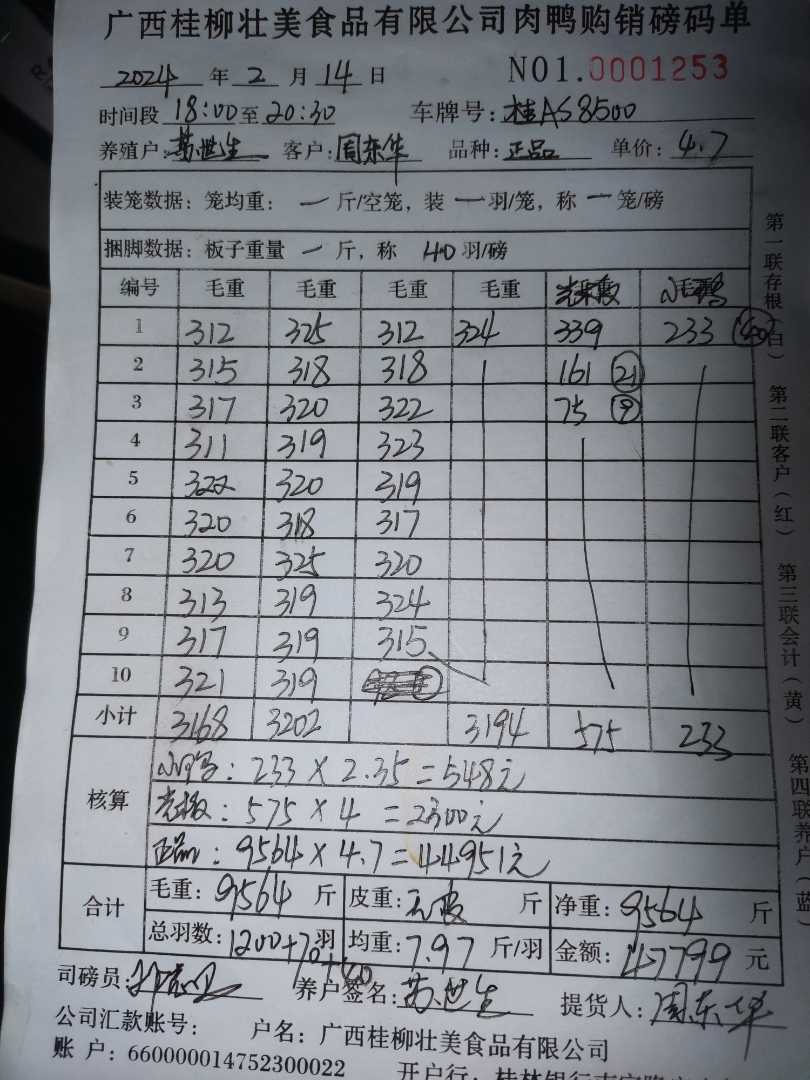 广西桂柳壮美食品有限公司肉鸭购销磅码单
2024 年 2 月 14 日 NO1.0001253
时间段 18:00 至 20:30 车牌号: 桂AS8500
养殖户: 苏世生 客户: 周东华 品种: 正品 单价: 4.7
装笼数据: 笼均重: 一 斤/空笼, 装 一 羽/笼, 称 一 笼/磅
捆脚数据: 板子重量 一 斤, 称 40 羽/磅
编号 毛重 毛重 毛重 毛重 光板 小毛鸭
1 312 325 312 324 339 233 (40)
2 315 318 318 161 (21)
3 317 320 322 75 (9)
4 311 319 323
5 322 320 319
6 320 318 317
7 320 325 320
8 313 319 324
9 317 319 315
10 321 319
小计 3168 3202 3194 575 233
核算
小鸭: 233 × 2.35 = 548元
光板: 575 × 4 = 2300元
正品: 9564 × 4.7 = 44951元
合计
毛重: 9564 斤 皮重: 无皮 斤 净重: 9564 斤
总羽数: 1200+70+40 羽 均重: 7.97 斤/羽 金额: 47799 元
司磅员: 养户签名: 苏世生 提货人: 周东华
公司汇款账号: 户名: 广西桂柳壮美食品有限公司
账 户: 660000014752300022 开户行: 桂林银行南宁
第一联存根(白) 第二联客户(红) 第三联会计(黄) 第四联养户(蓝)